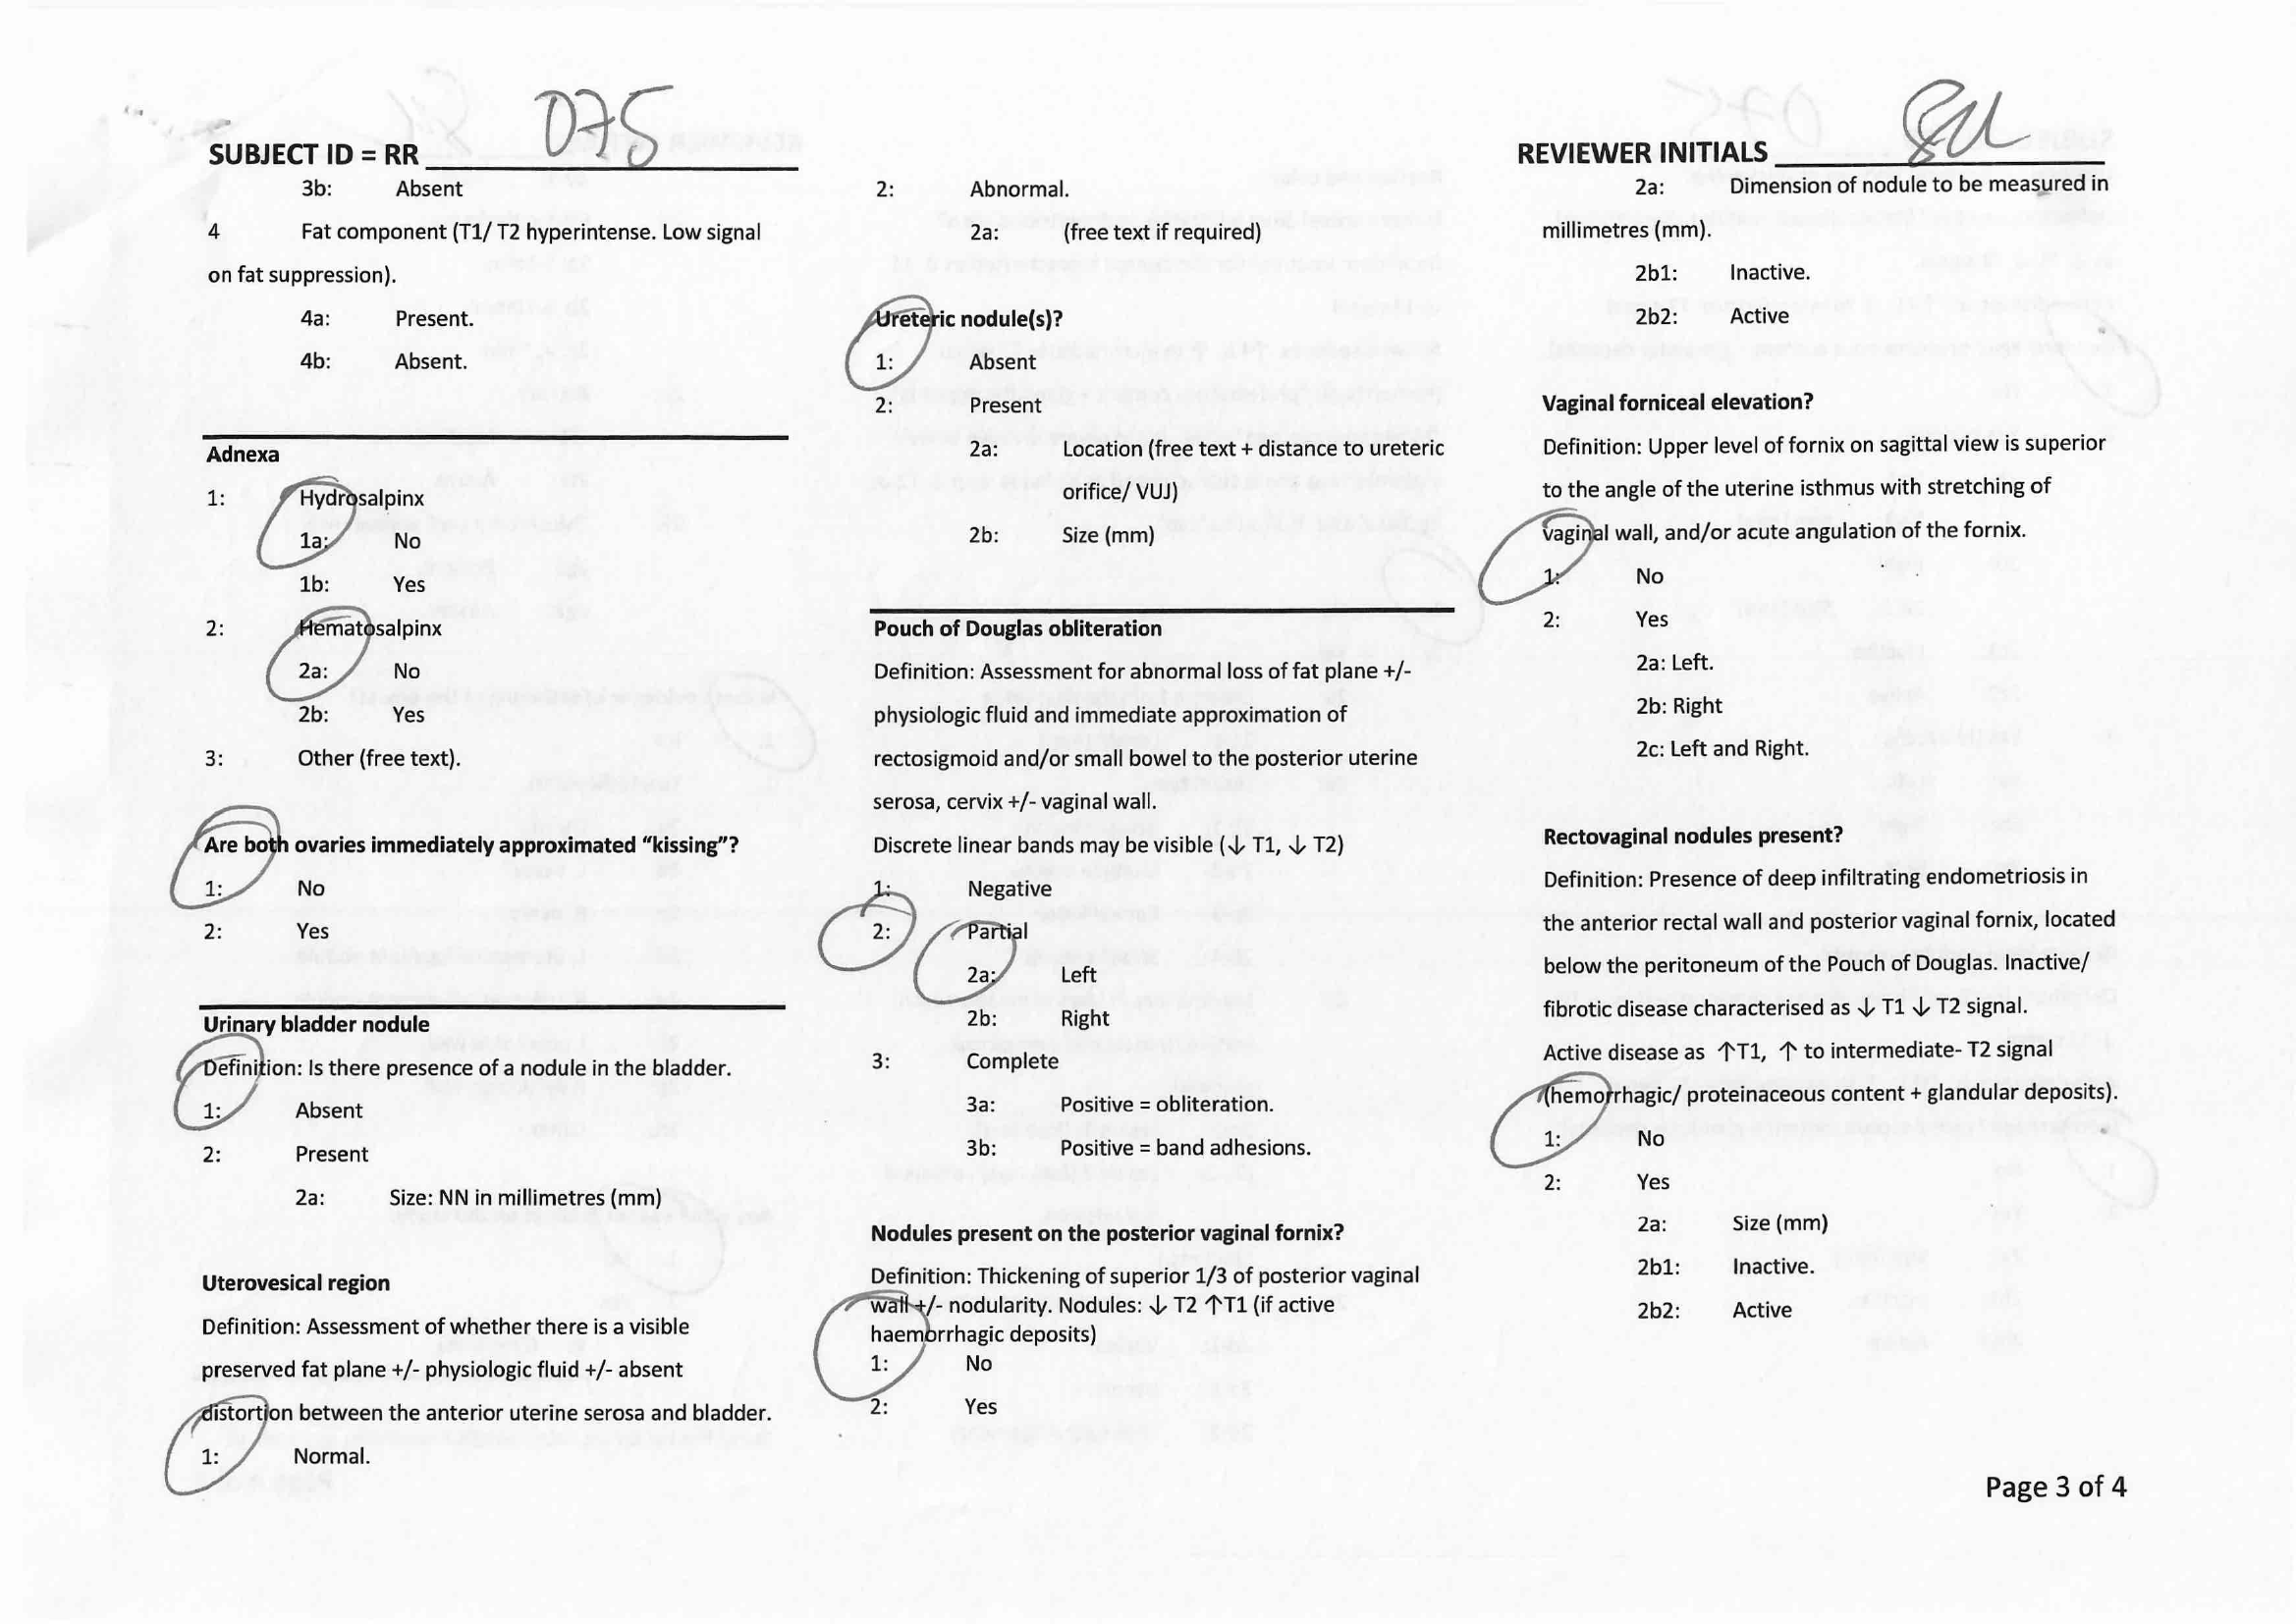 SUBJECT ID = RR 075
3b: Absent
4 Fat component (T1/ T2 hyperintense. Low signal
on fat suppression).
4a: Present.
4b: Absent.
Adnexa
1: Hydrosalpinx
1a: No
1b: Yes
2: Hematosalpinx
2a: No
2b: Yes
3: Other (free text).
Are both ovaries immediately approximated “kissing”?
1: No
2: Yes
Urinary bladder nodule
Definition: Is there presence of a nodule in the bladder.
1: Absent
2: Present
2a: Size: NN in millimetres (mm)
Uterovesical region
Definition: Assessment of whether there is a visible
preserved fat plane +/- physiologic fluid +/- absent
distortion between the anterior uterine serosa and bladder.
1: Normal.
2: Abnormal.
2a: (free text if required)
Ureteric nodule(s)?
1: Absent
2: Present
2a: Location (free text + distance to ureteric
orifice/ VUJ)
2b: Size (mm)
Pouch of Douglas obliteration
Definition: Assessment for abnormal loss of fat plane +/-
physiologic fluid and immediate approximation of
rectosigmoid and/or small bowel to the posterior uterine
serosa, cervix +/- vaginal wall.
Discrete linear bands may be visible (↓ T1, ↓ T2)
1: Negative
2: Partial
2a: Left
2b: Right
3: Complete
3a: Positive = obliteration.
3b: Positive = band adhesions.
Nodules present on the posterior vaginal fornix?
Definition: Thickening of superior 1/3 of posterior vaginal
wall +/- nodularity. Nodules: ↓ T2 ↑T1 (if active
haemorrhagic deposits)
1: No
2: Yes
REVIEWER INITIALS
2a: Dimension of nodule to be measured in
millimetres (mm).
2b1: Inactive.
2b2: Active
Vaginal forniceal elevation?
Definition: Upper level of fornix on sagittal view is superior
to the angle of the uterine isthmus with stretching of
vaginal wall, and/or acute angulation of the fornix.
1: No
2: Yes
2a: Left.
2b: Right
2c: Left and Right.
Rectovaginal nodules present?
Definition: Presence of deep infiltrating endometriosis in
the anterior rectal wall and posterior vaginal fornix, located
below the peritoneum of the Pouch of Douglas. Inactive/
fibrotic disease characterised as ↓ T1 ↓ T2 signal.
Active disease as ↑T1, ↑ to intermediate- T2 signal
(hemorrhagic/ proteinaceous content + glandular deposits).
1: No
2: Yes
2a: Size (mm)
2b1: Inactive.
2b2: Active
Page 3 of 4